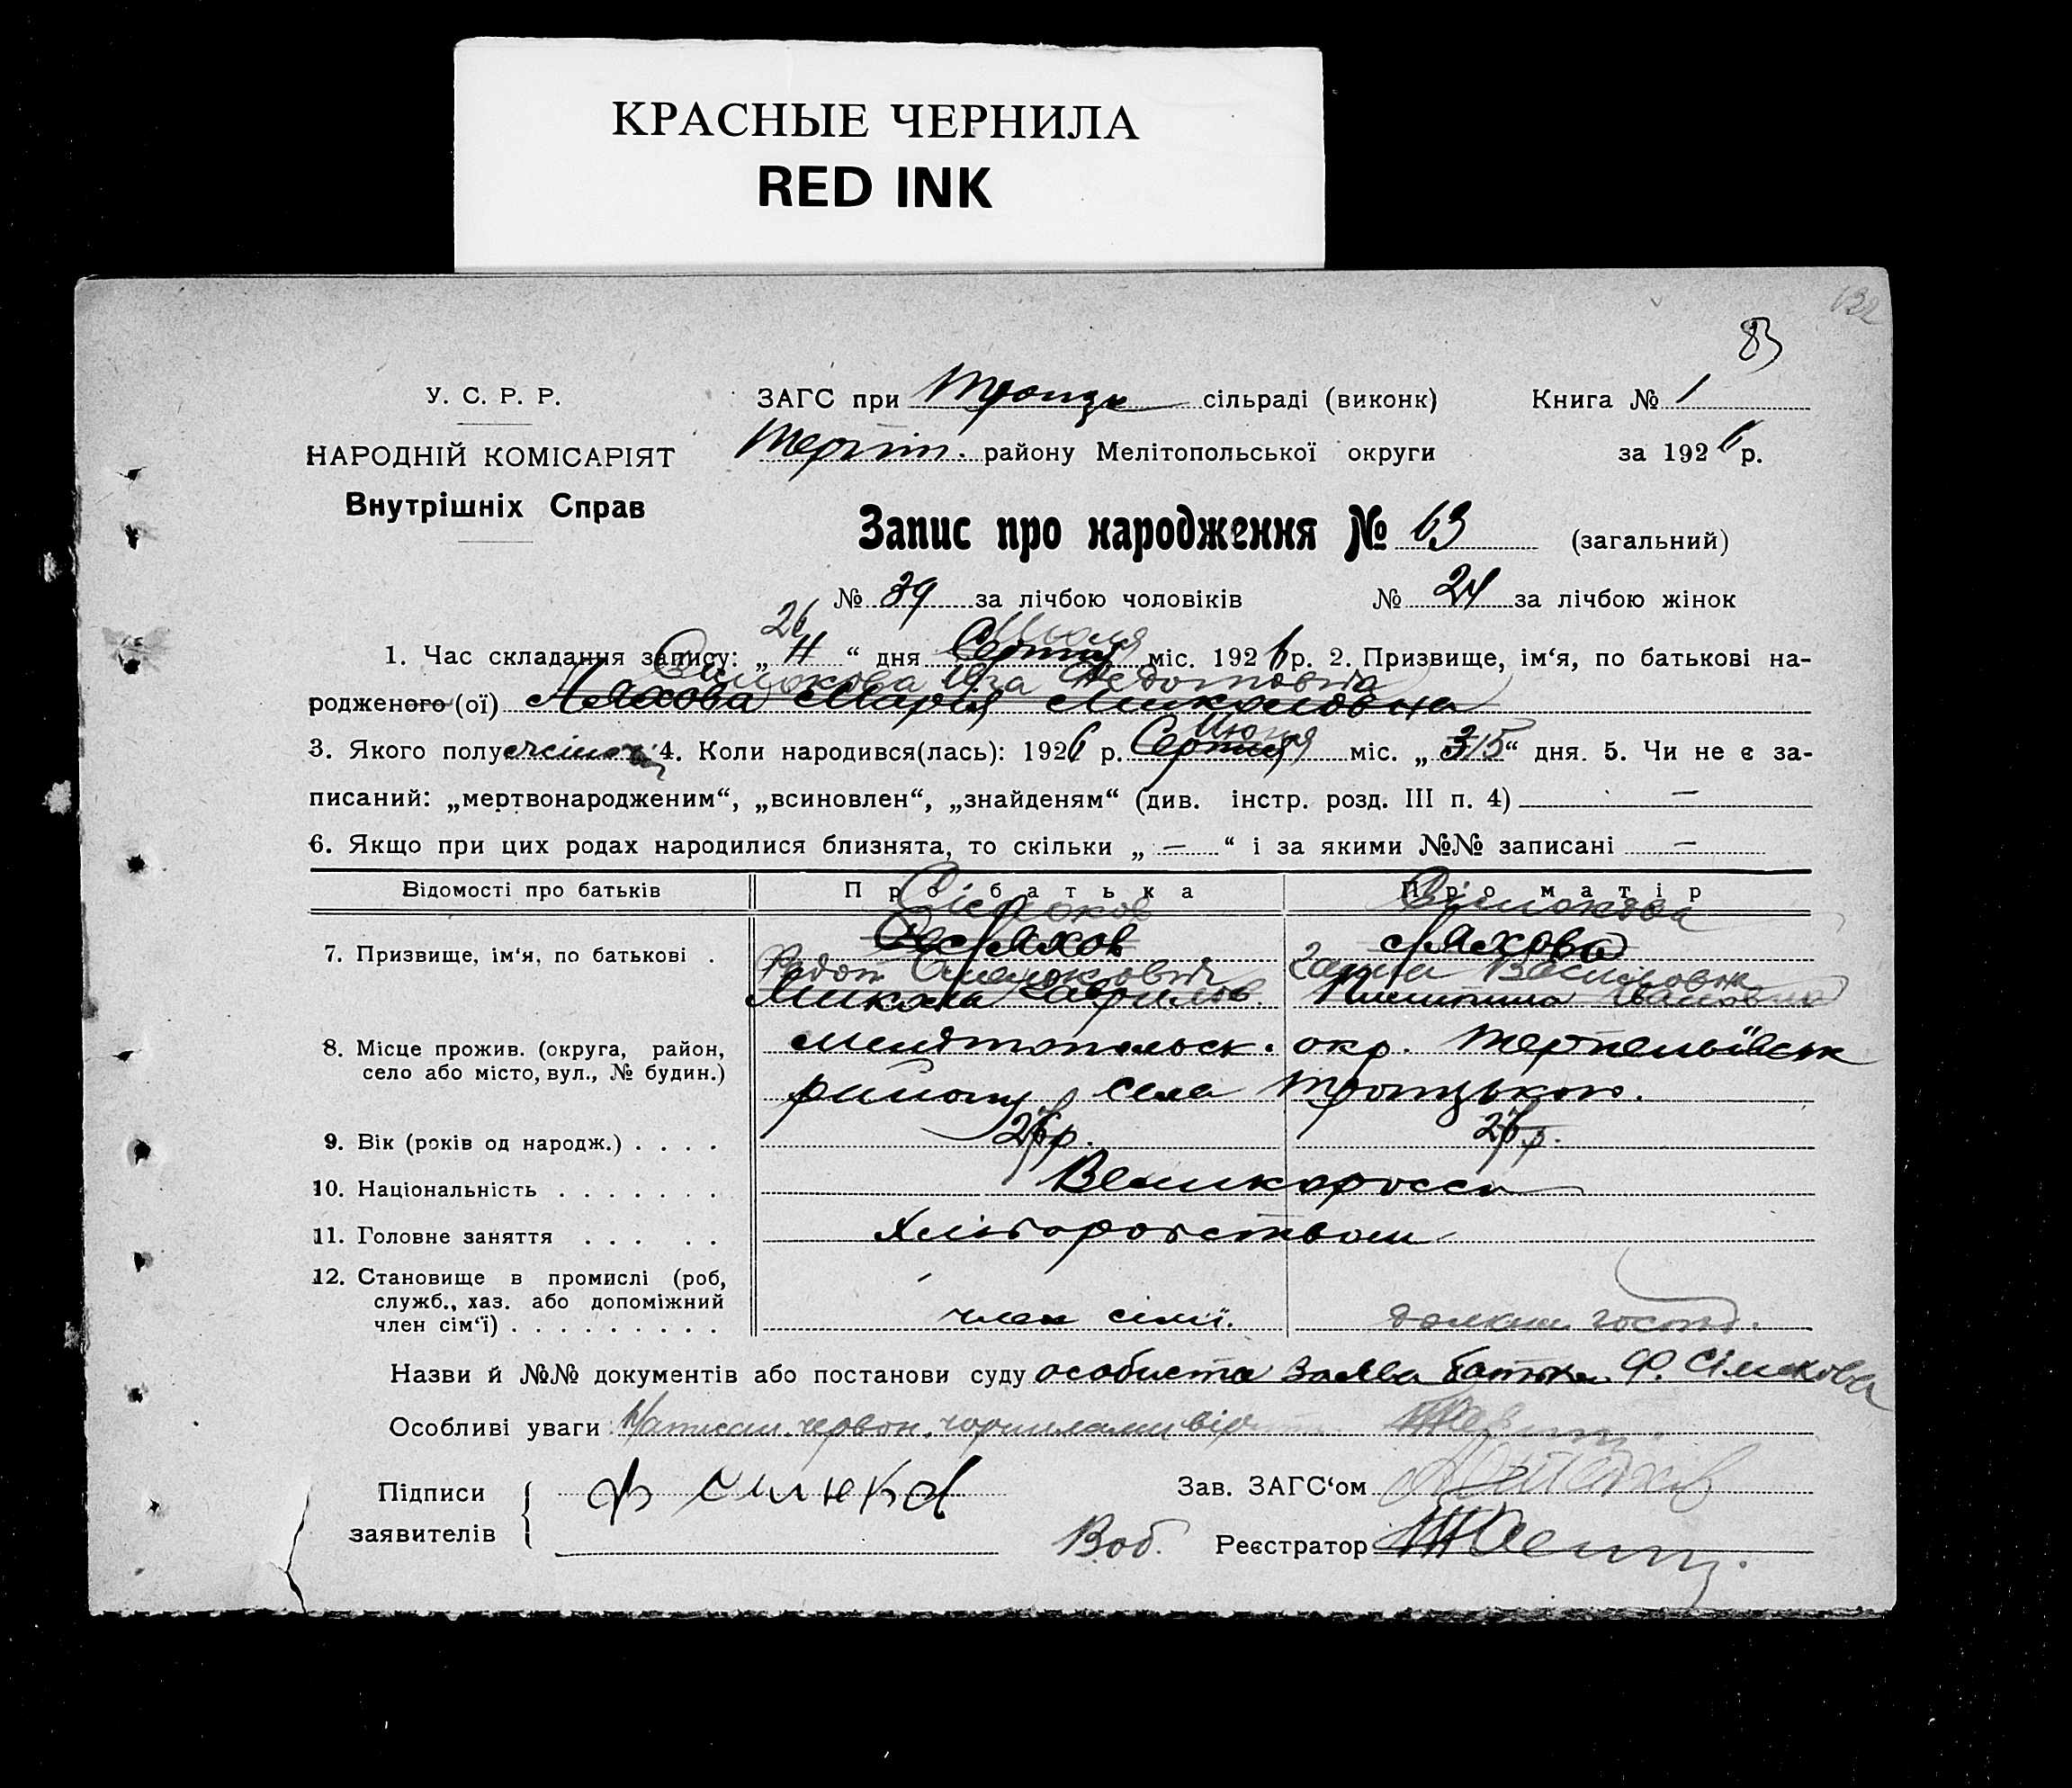 КРАСНЫЕ ЧЕРНИЛА
RED INK
132
83
У. С. Р. Р.
НАРОДНІЙ КОМІСАРІЯТ
Внутрішніх Справ
ЗАГС при Троицк сільраді (виконк)
Книга № 1
Терпін. району Мелітопольської округи
за 1926 р.
Запис про народження № 63 (загальний)
№ 39 за лічбою чоловіків № 24 за лічбою жінок
26 Июля
1. Час складання запису: „ 4 “ дня Серпня міс. 1926 р. 2. Призвище, ім‘я, по батькові на-
Силюкова
родженого (ої) Ляхова Марія Миколовна
Июля
3. Якого полу жіноч. 4. Коли народився(лась): 1926 р. Серпня міс. „ 3 15 “ дня. 5. Чи не є за-
писаний: „мертвонародженим“, „всиновлен“, „знайденям“ (див. інстр. розд. III п. 4) —
6. Якщо при цих родах народилися близнята, то скільки „ — “ і за якими №№ записані —
Відомості про батьків Про батька Про матір
Сілюков Сілюкова
7. Призвище, ім‘я, по батькові . Ляхов Ляхова
Федот Ганна Василовна
Микола Гаврилов Ивановна
8. Місце прожив. (округа, район, село або місто, вул., № будин.)
Мелітопольск. окр. Терпеньївськ
району села Троицького.
9. Вік (років од народж.) . . . . 26 р. 26 р.
10. Національність . . . . . . . Великоросси
11. Головне заняття . . . . . Хліборобством
12. Становище в промислі (роб, служб., хаз. або допоміжний член сім‘ї) . . . . . . . . .
член сімї. домашн. господ.
Назви й №№ документів або постанови суду особиста заява батька Ф. Сілюкова
Особливі уваги Написан. червон. чорнилами вірно
Підписи
заявителів
Ф Силюков
Зав. ЗАГС‘ом
В.об. Реєстратор